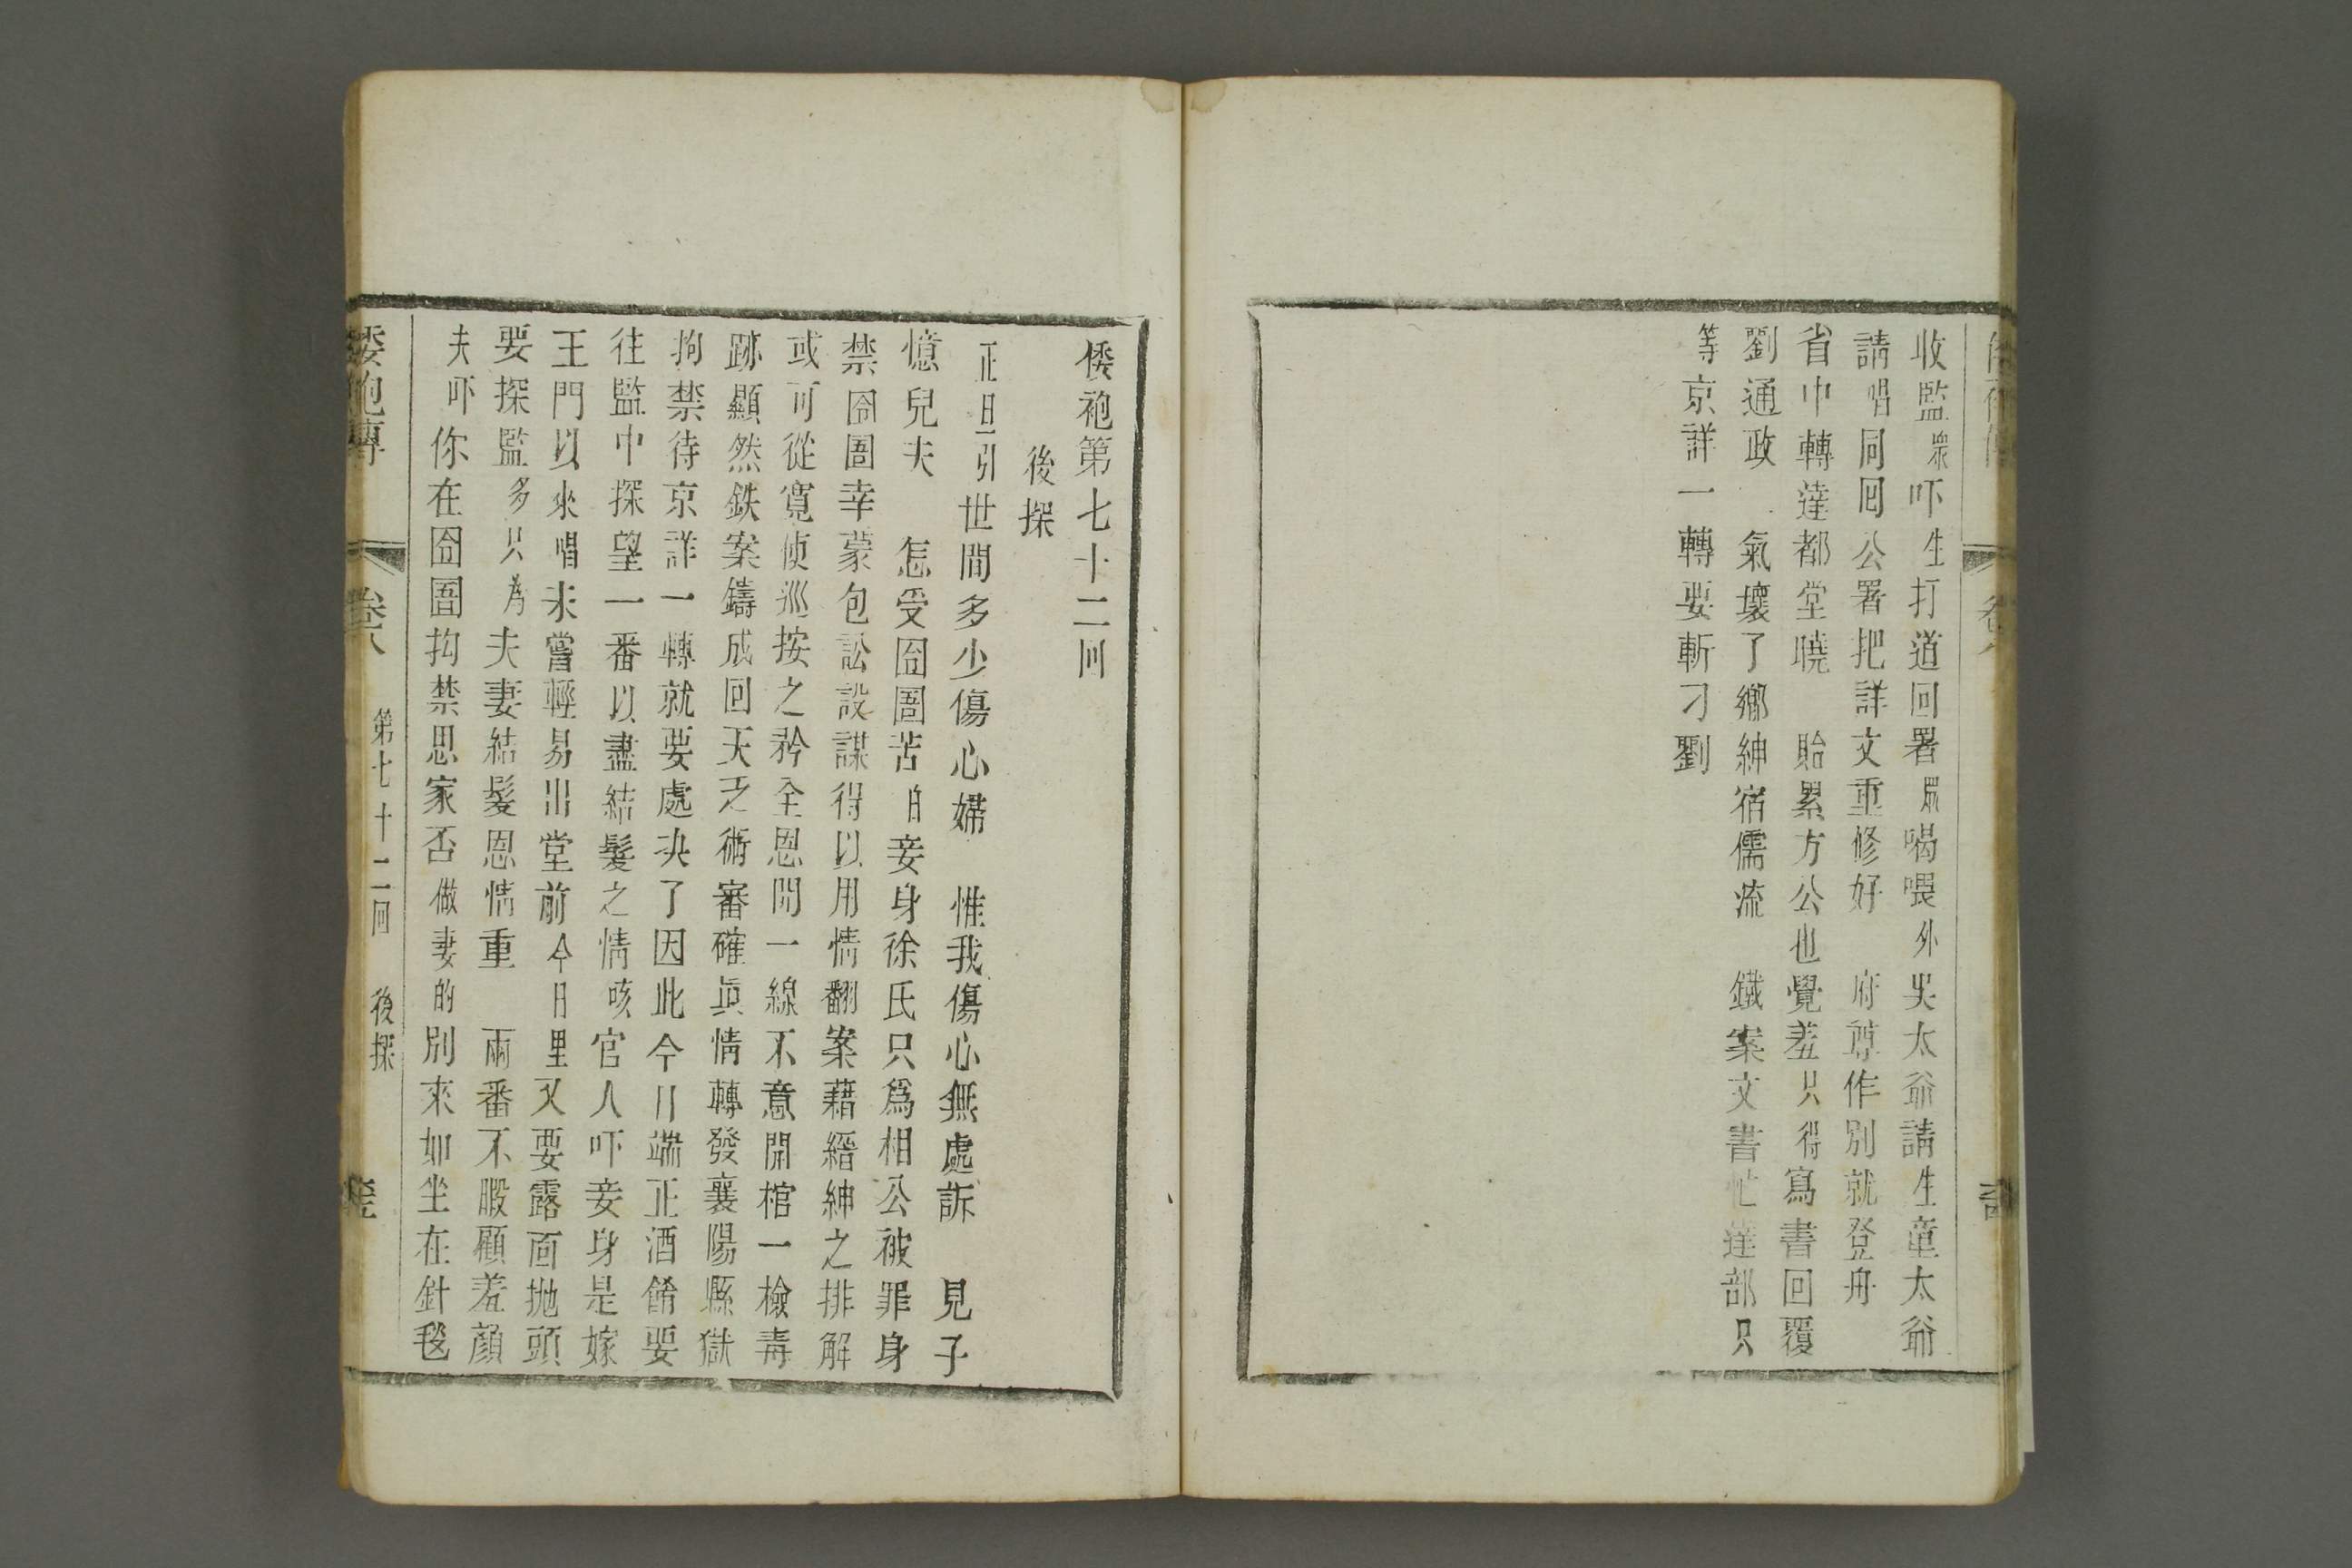 收監衆吓生打道回署衆喝喂外吴太爺請生童太爺
請唱同回公署把詳文重修好　府尊作別就登舟
省中轉達都堂曉　貽累方公也覺羞只得寫書回覆
劉通政　氣壞了鄉紳宿儒流　鐵案文書忙達部只
等京詳一轉要斬刁劉
倭袍第七十二回
後探
正旦引世間多少傷心婦　惟我傷心無處訴　見子
憶兒夫　怎受囹圄苦白妾身徐氏只爲相公被罪身
禁囹圄幸蒙包訟設謀得以用情翻案藉縉紳之排解
或可從寬偵巡按之矜全恩開一線不意開棺一檢毒
跡顯然鉄案鑄成回天乏術審確真情轉發襄陽縣獄
拘禁待京詳一轉就要處决了因此今日端正酒餚要
往監中探望一番以盡結髮之情咳官人吓妾身是嫁
王門以來唱未嘗輕易出堂前今日里又要露面拋頭
要探監多只為夫妻結髮恩情重　兩番不暇顧羞顔
夫吓你在囹圄拘禁思家否做妻的別來如坐在針毯
倭袍傳　卷八　第七十二回　後探